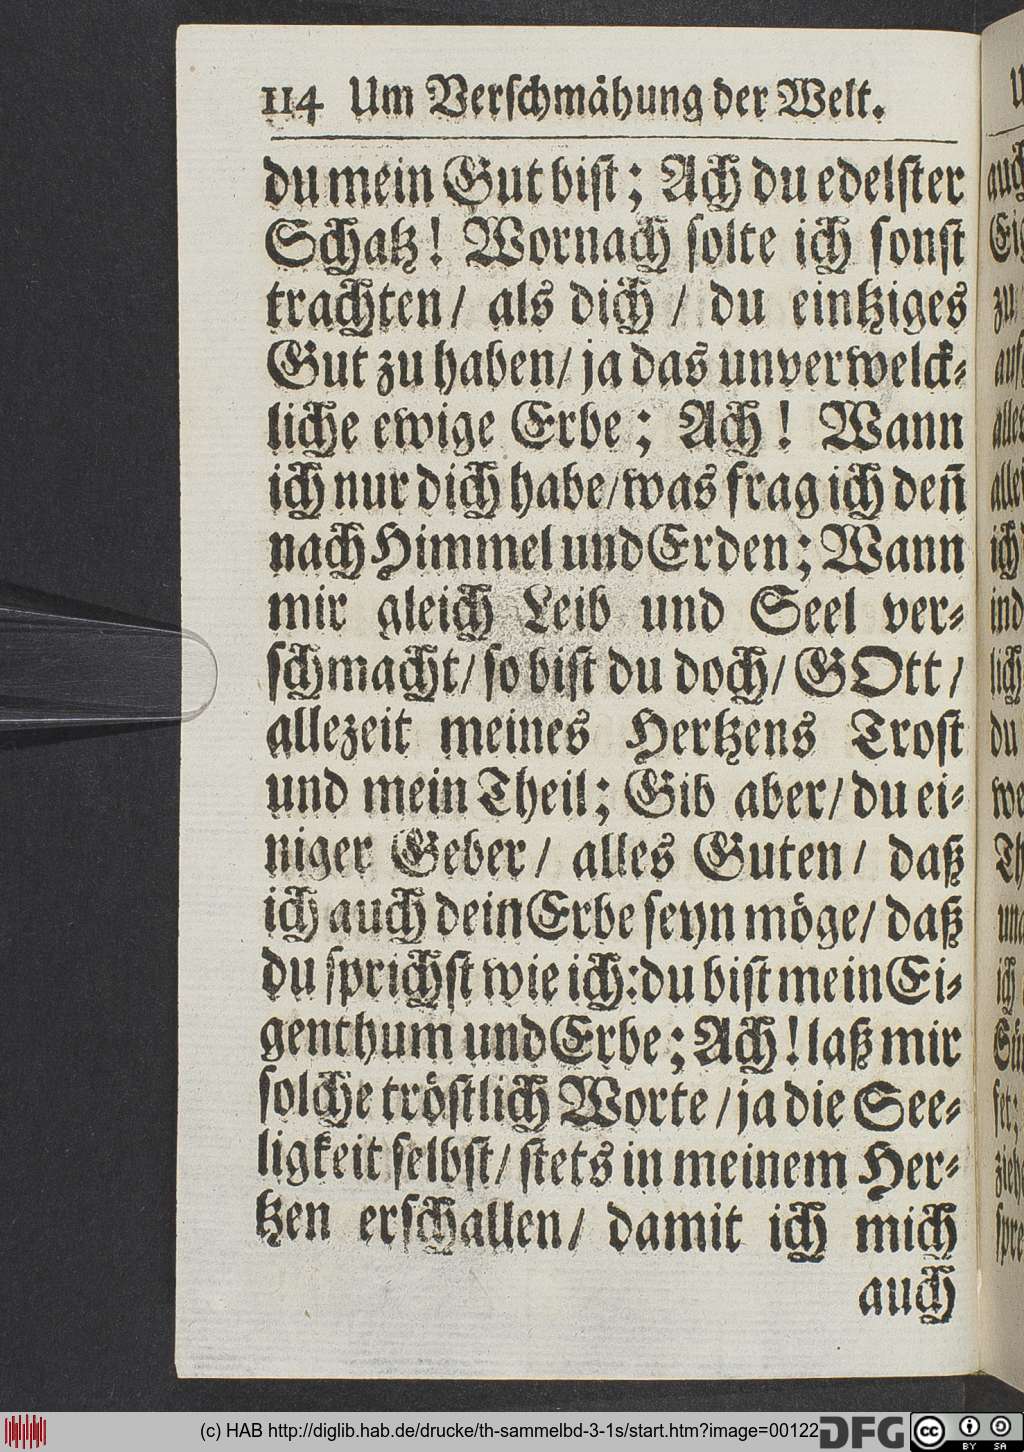 114 Um Verſchmaͤhung der Welt.
du mein Gut biſt; Ach du edelſter
Schatz! Wornach ſolte ich ſonſt
trachten/ als dich/ du eintziges
Gut zu haben/ ja das unverwelck-
liche ewige Erbe; Ach! Wann
ich nur dich habe/ was frag ich deñ
nach Himmel und Erden; Wann
mir gleich Leib und Seel ver-
ſchmacht/ ſo biſt du doch/ GOtt/
allezeit meines Hertzens Troſt
und mein Theil; Gib aber/ du ei-
niger Geber/ alles Guten/ daß
ich auch dein Erbe ſeyn moͤge/ daß
du ſprichſt wie ich: du biſt mein Ei-
genthum und Erbe; Ach! laß mir
ſolche troͤſtlich Worte/ ja die See-
ligkeit ſelbſt/ ſtets in meinem Her-
tzen erſchallen/ damit ich mich
auch
(c) HAB http://diglib.hab.de/drucke/th-sammelbd-3-1s/start.htm?image=00122
DFG
cc BY SA